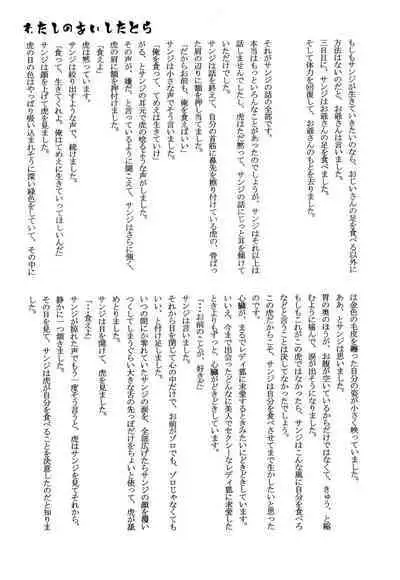 わたしのあいしたとら
もしもサンジが生きていきたいのなら、おじいさんの足を食べる以外に
方法はないのだと、お爺さんは言いました。
三日目に、サンジはお爺さんの足を食べました。
そして体力を回復して、お爺さんのもとを去りました。
それがサンジの話の全部です。
本当はもっといろんなことがあったのでしょうが、サンジはそれ以上は
話しませんでしたし、虎はただ黙って、サンジの話にじっと耳を傾けて
いただけでした。
サンジは話を終えて、自分の首筋に鼻先を擦り付けている虎の、骨ばっ
た肩の辺りに額を押し当てました。
「だからお前も、俺を食えばいい」
サンジは小さな声でそう言いました。
「俺を食って、そんで生きていけ」
がる、とサンジの耳元で虎の唸るような声がしました。
その声が、嫌だ、と言っているように聞こえて、サンジはさらに強く、
虎の肩に額を押付けました。
「食えよ」
虎は黙っています。
サンジは絞り出すような声で、続けました。
「食って、生きてくれよ。俺はてめえに生きていってほしいんだ」
サンジは顔を上げて虎を見ました。
虎の目の色はやっぱり吸い込まれそうに深い緑色をしていて、その中に
は金色の毛皮を纏った自分の姿が小さく映っていました。
ああ、とサンジは思いました。
胃の奥のほうが、お腹が空いているからだけではなくて、きゅう、と縮
むように痛んで、涙が出そうになりました。
もしもこれがこの虎ではなかったなら、サンジはこんな風に自分を食べろ
などと言うことは決してなかったでしょう。
この虎だからこそ、サンジは自分を食べさせてまで生かしたいと思った
のです。
心臓が、まるでレディ狐に求愛するときみたいにどきどきしています。
いいえ、今まで出会ったどんなに美人でセクシーなレディ狐に求愛した
ときよりもずっと、心臓がどきどきしています。
「……お前のことが、好きだ」
サンジは言いました。
それから目を閉じて心の中だけで、お前がゾロでも、ゾロじゃなくても
いい、と付け足しました。
いつの間にか零れていたサンジの涙を、全部広げたらサンジの顔を覆い
つくしてしまうぐらい大きな舌の先っぽだけをちょいと使って、虎が舐
めとりました。
サンジは目を開けて、虎を見ました。
「……食えよ」
サンジが掠れた声でもう一度そう言うと、虎はサンジを見てそれから、
静かに一つ頷きました。
その目を見て、サンジは虎が自分を食べることを決意したのだと知りま
した。